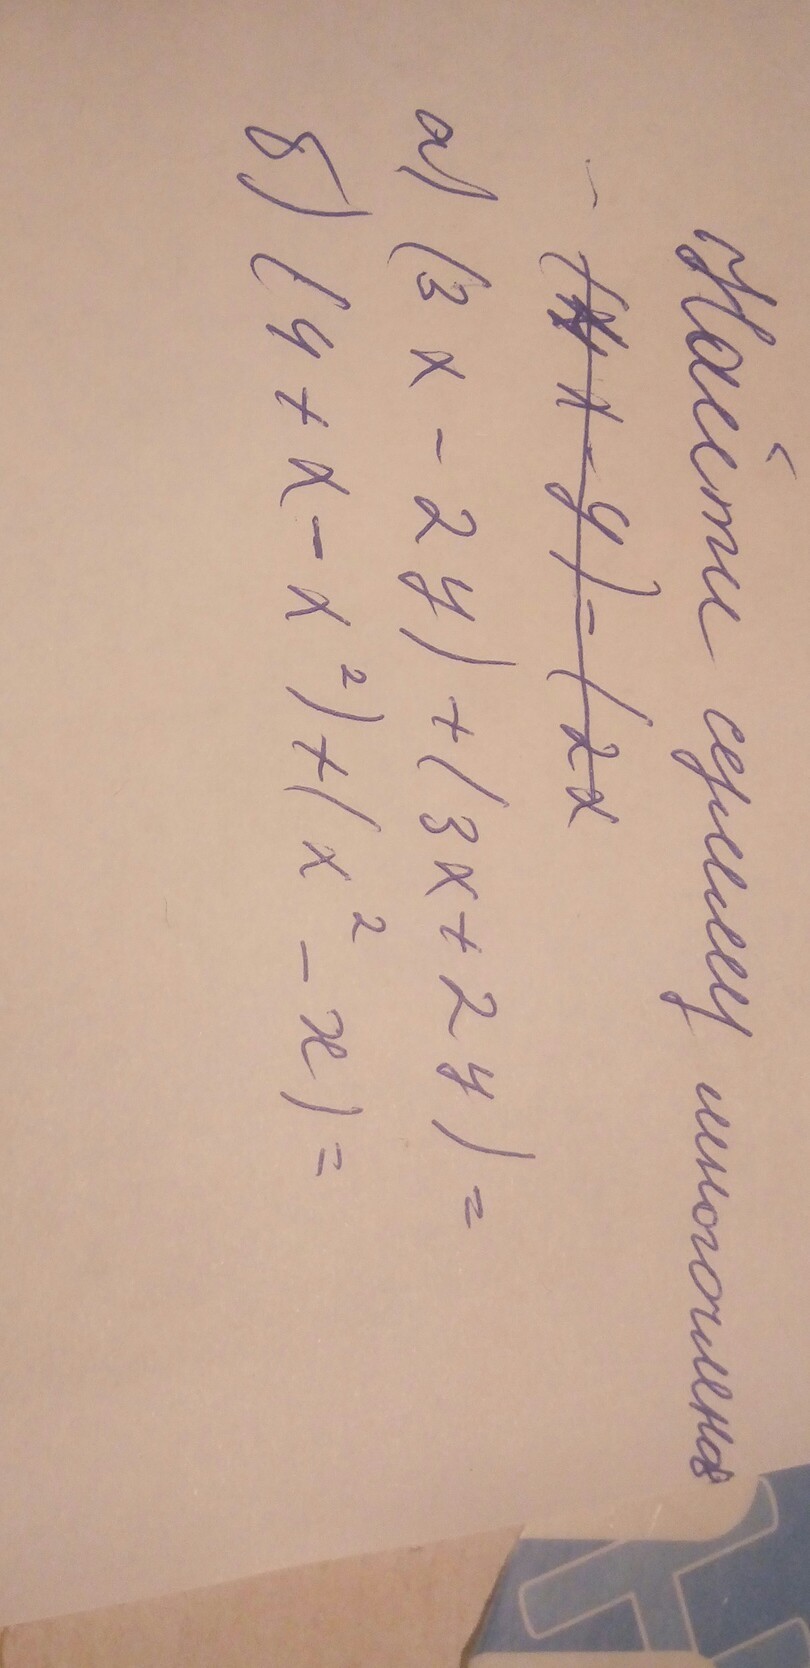 Найти сумму многочленов
а) (3x - 2y) + (3x + 2y) =
б) (4 + x - x²) + (x² - x) =